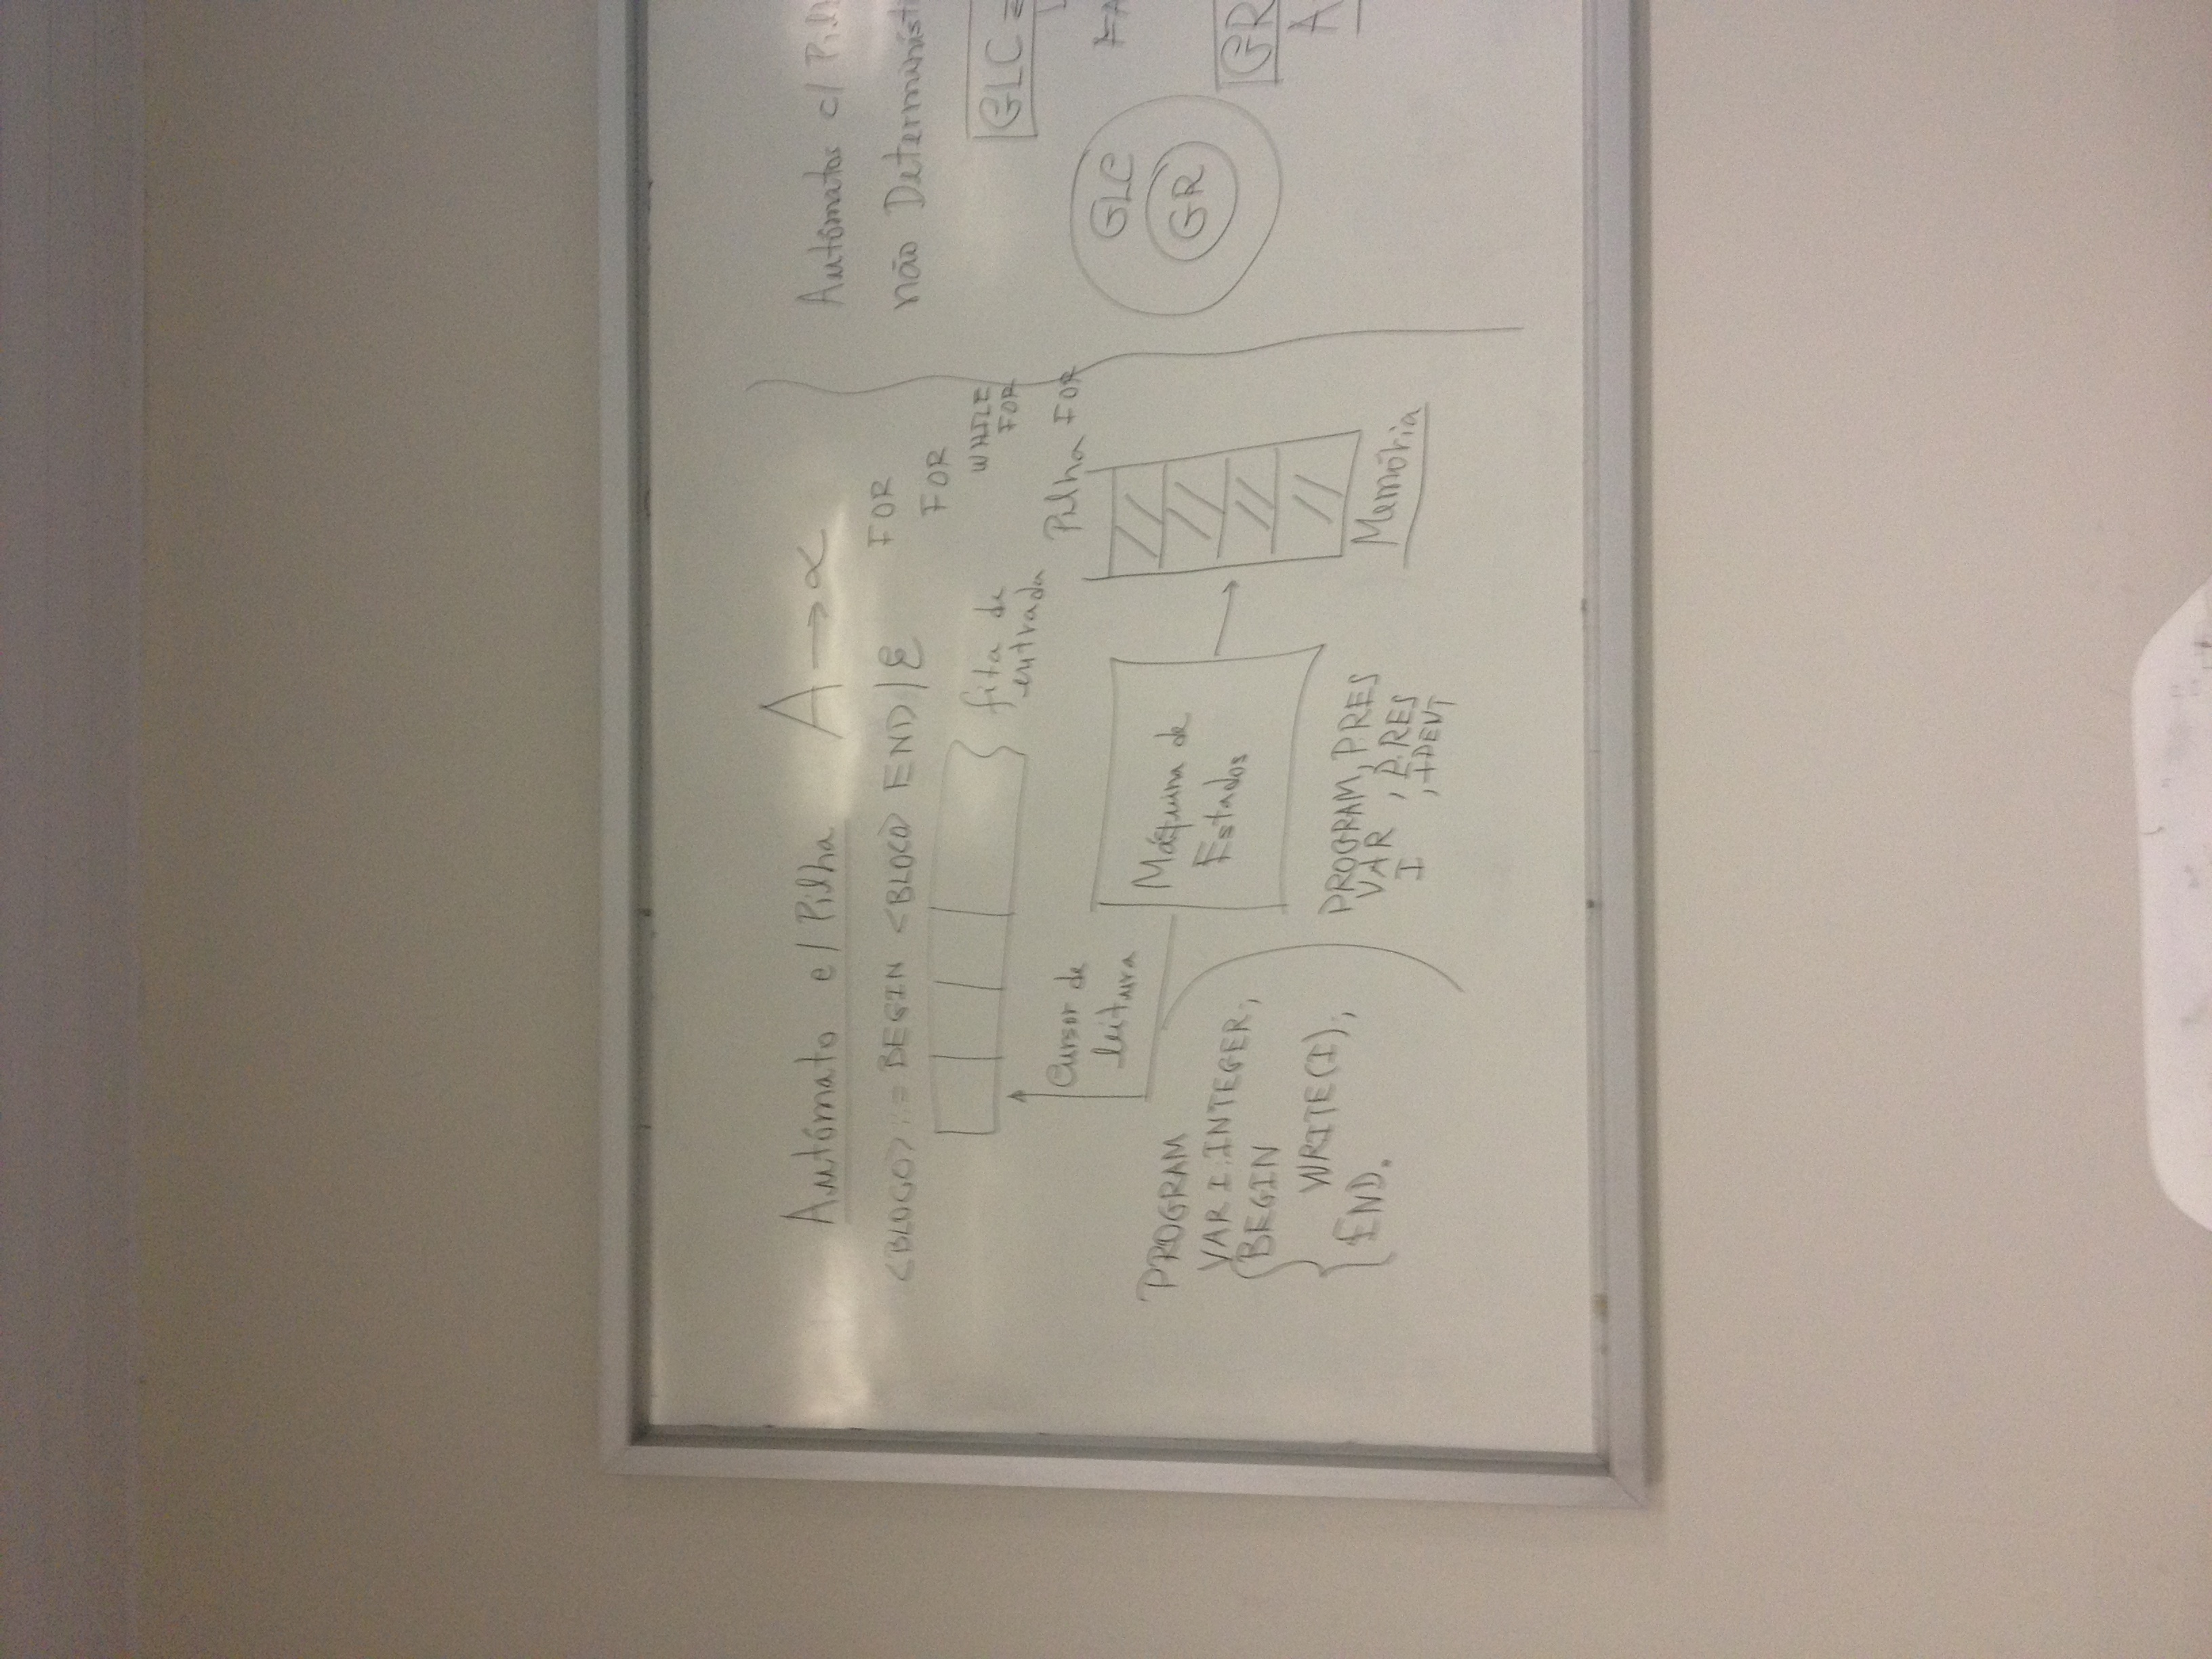 Autómato c/ Pilha A → α
<BLOCO> ::= BEGIN <BLOCO> END | ε
FOR
FOR
WHILE
FOR
FOR
fita de
entrada
Cursor de
leitura
Pilha
Máquina de
Estados
Memória
PROGRAM
VAR I:INTEGER;
BEGIN
WRITE(I);
END.
PROGRAM, P.RES
VAR , P.RES
I , IDENT
Autómatos c/
não
GLC
GLC
GR
GR
A